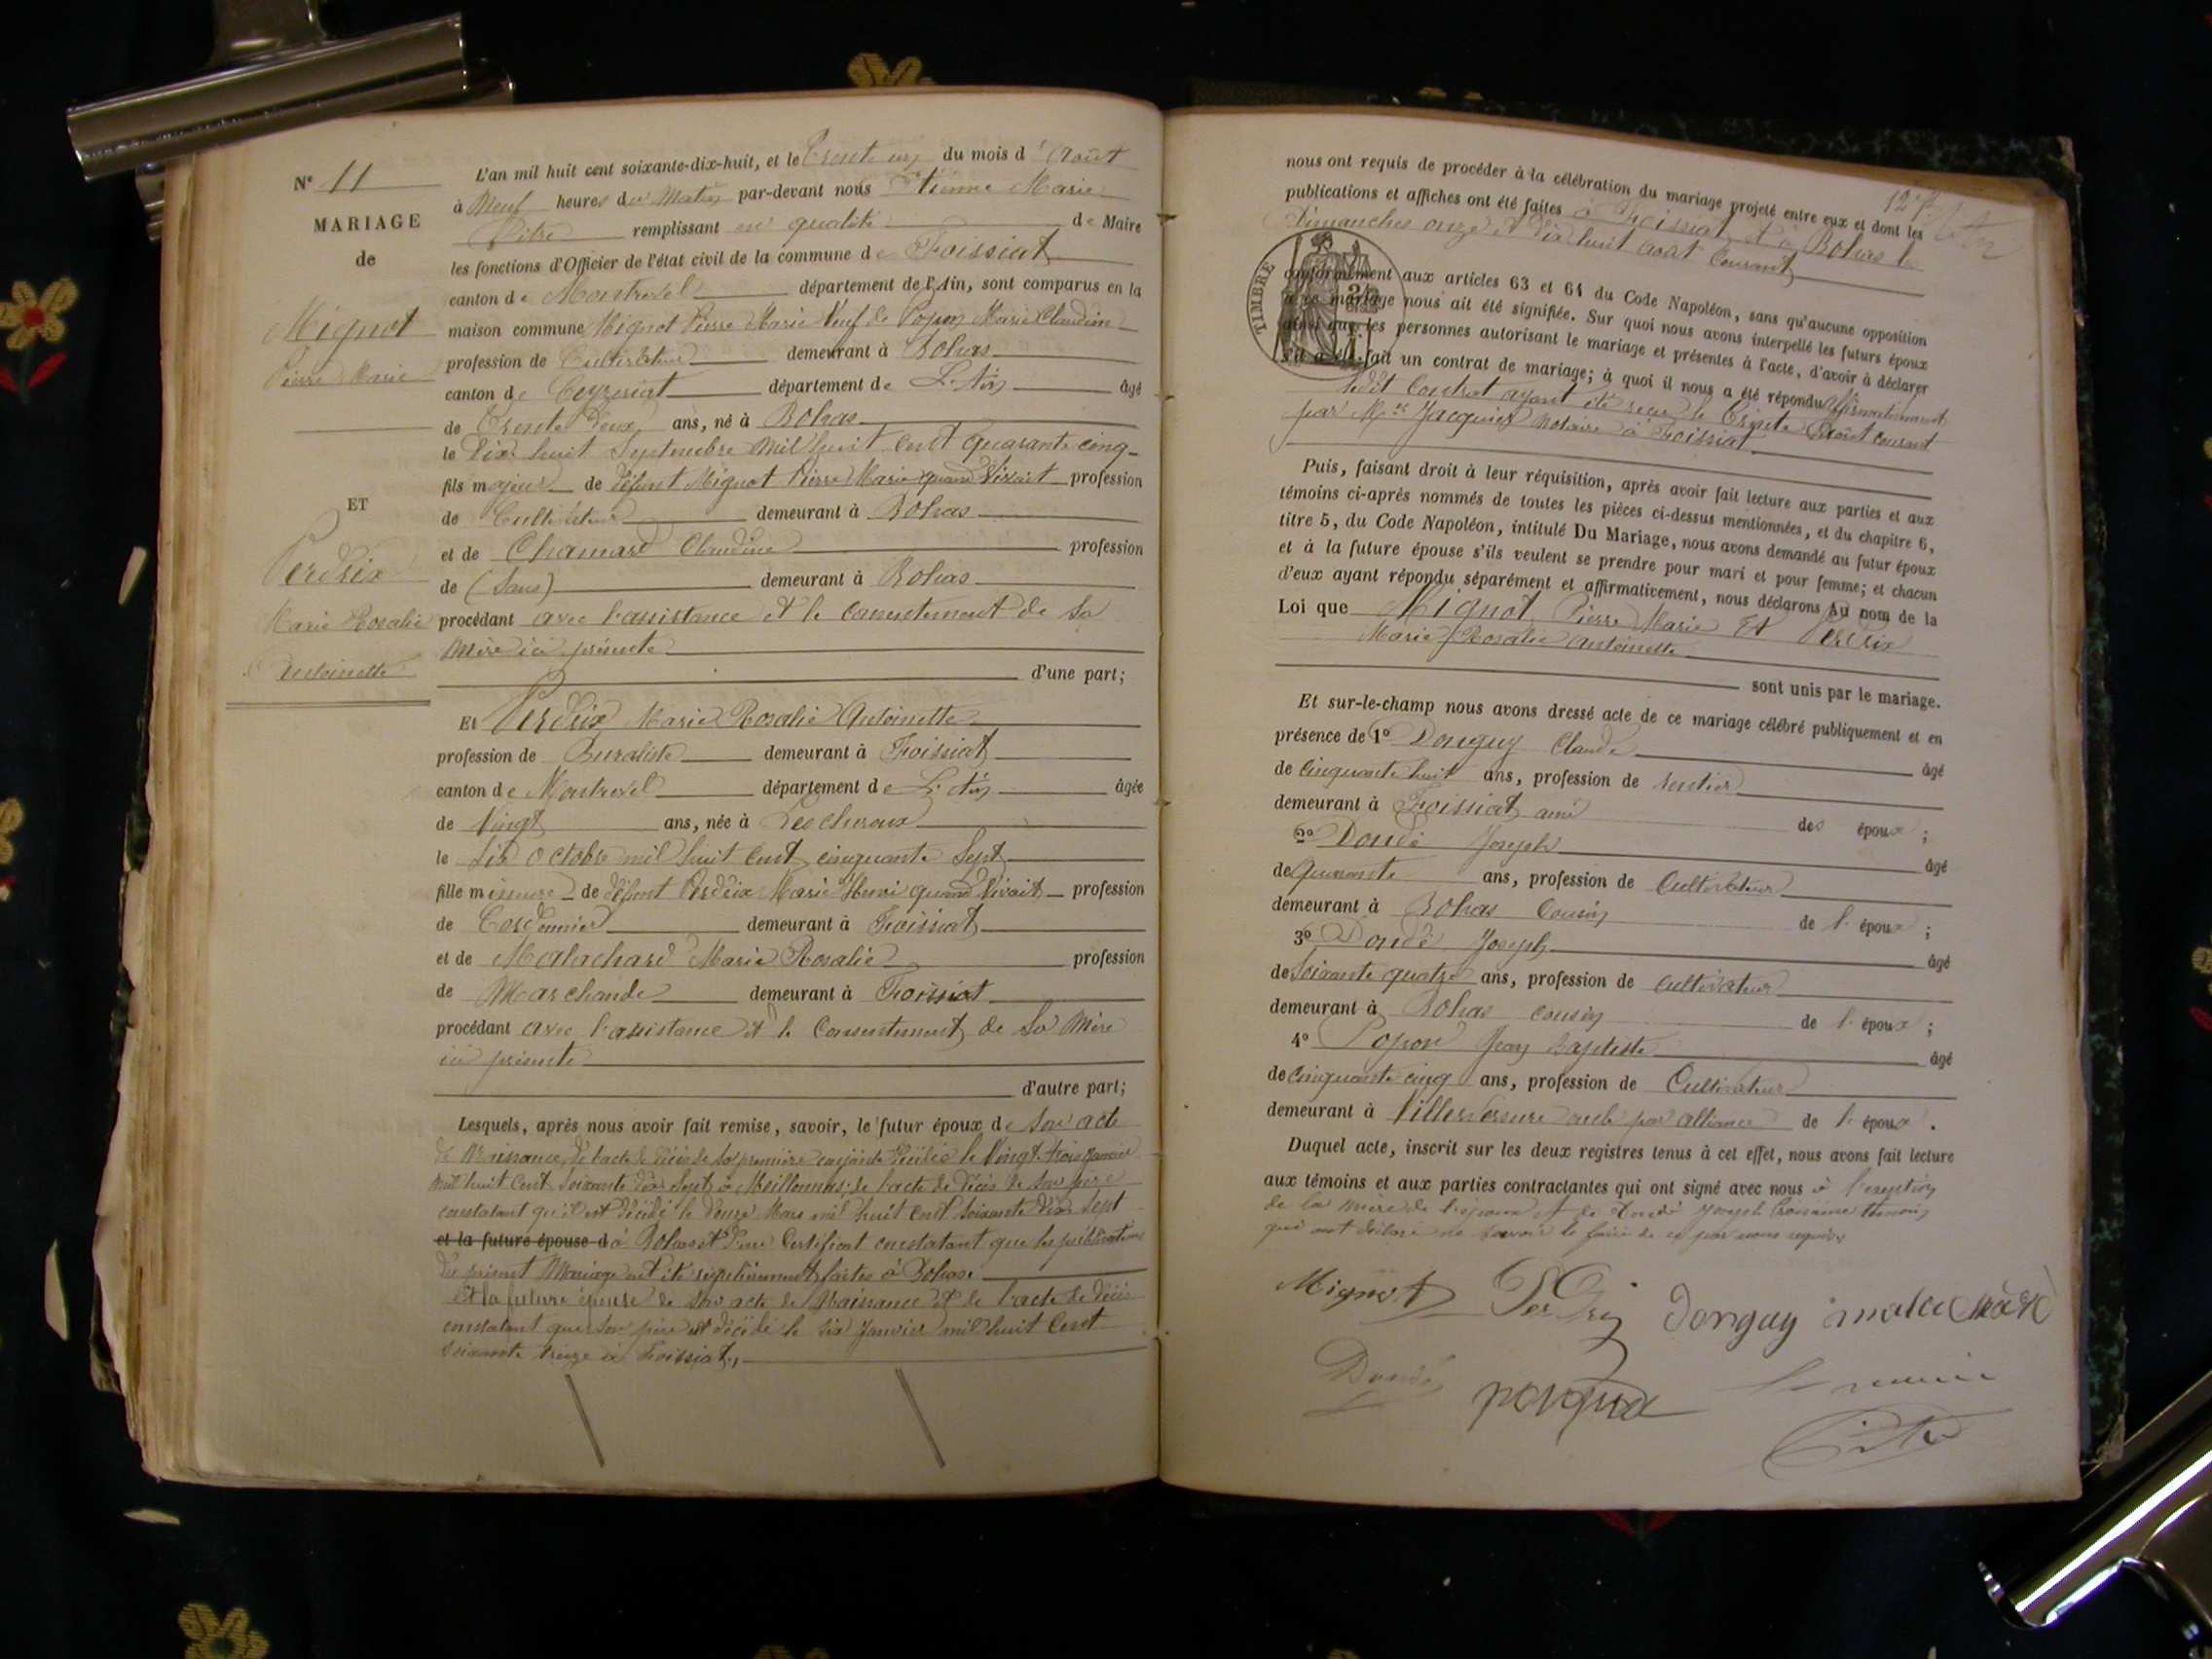 N° 11
MARIAGE
de
Mignot
Pierre Marie
ET
Perdrix
Marie Rosalie
Antoinette
L'an mil huit cent soixante-dix-huit, et le Trente un du mois d'Août
à Neuf heures du Matin par-devant nous Etienne Marie
Pitre remplissant en qualité de Maire
les fonctions d'Officier de l'état civil de la commune de Foissiat
canton de Montrevel département de l'Ain, sont comparus en la
maison commune Mignot Pierre Marie Veuf de Popon Marie Claudine
profession de Cultivateur demeurant à Bohas
canton de Ceyzeriat département de L'Ain âgé
de Trente deux ans, né à Bohas
le Dix huit Septembre mil huit cent quarante cinq
fils majeur de défunt Mignot Pierre Marie quand vivait profession
de Cultivateur demeurant à Bohas
et de Chanard Claudine profession
de (Sans) demeurant à Bohas
procédant avec l'assistance et le consentement de sa
Mère ici présente
d'une part;
Et Perdrix Marie Rosalie Antoinette
profession de Buraliste demeurant à Foissiat
canton de Montrevel département de L'Ain âgée
de Vingt ans, née à Lescheroux
le Dix Octobre mil huit cent cinquante Sept
fille mineure de défunt Perdrix Marie Henri quand vivait profession
de Cordonnier demeurant à Foissiat
et de Malachard Marie Rosalie profession
de Marchande demeurant à Foissiat
procédant avec l'assistance et le Consentement de Sa Mère
ici présente
d'autre part;
Lesquels, après nous avoir fait remise, savoir, le futur époux de Son acte
de Naissance, de l'acte de décès de Sa première conjointe décédée le Vingt trois Janvier
mil huit cent soixante dix sept à Meillonnas; de l'acte de décès de Son père
constatant qu'il est décédé le douze Mars mil huit cent soixante dix sept
et la future épouse d à Bohas et d'un Certificat constatant que les publications
du présent Mariage ont été régulièrement faites à Bohas.
Et la future épouse de Son acte de Naissance et de l'acte de décès
constatant que son père est décédé le six Janvier mil huit cent
soixante treize à Foissiat.
nous ont requis de procéder à la célébration du mariage projeté entre eux et dont les
publications et affiches ont été faites à Foissiat et à Bohas les
Dimanches onze et dix huit août Courant
TIMBRE
conformément aux articles 63 et 64 du Code Napoléon, sans qu'aucune opposition
à ce mariage nous ait été signifiée. Sur quoi nous avons interpellé les futurs époux
ainsi que les personnes autorisant le mariage et présentes à l'acte, d'avoir à déclarer
s'il a été fait un contrat de mariage; à quoi il nous a été répondu affirmativement
ledit Contrat ayant été reçu le Trente Août courant
par Me Jacquier Notaire à Foissiat.
Puis, faisant droit à leur réquisition, après avoir fait lecture aux parties et aux
témoins ci-après nommés de toutes les pièces ci-dessus mentionnées, et du chapitre 6,
titre 5, du Code Napoléon, intitulé Du Mariage, nous avons demandé au futur époux
et à la future épouse s'ils veulent se prendre pour mari et pour femme; et chacun
d'eux ayant répondu séparément et affirmativement, nous déclarons au nom de la
Loi que Mignot Pierre Marie Et Perdrix
Marie Rosalie Antoinette
sont unis par le mariage.
Et sur-le-champ nous avons dressé acte de ce mariage célébré publiquement et en
présence de 1° Donguy Claude âgé
de Cinquante huit ans, profession de rentier
demeurant à Foissiat ami des époux;
2° Doudé Joseph âgé
de Quarante ans, profession de Cultivateur
demeurant à Bohas Cousin de l'époux;
3° Doudé Joseph âgé
de Soixante quatre ans, profession de Cultivateur
demeurant à Bohas cousin de l'époux;
4° Popon Jean Baptiste âgé
de Cinquante cinq ans, profession de Cultivateur
demeurant à Villereversure oncle par alliance de l'époux.
Duquel acte, inscrit sur les deux registres tenus à cet effet, nous avons fait lecture
aux témoins et aux parties contractantes qui ont signé avec nous à l'exception
de la mère de l'époux et de Doudé Joseph troisième témoin
qui ont déclaré ne savoir le faire de ce par nous requis
Mignot Perdrix donguy malachard
Doudé popon Le maire
Pitre